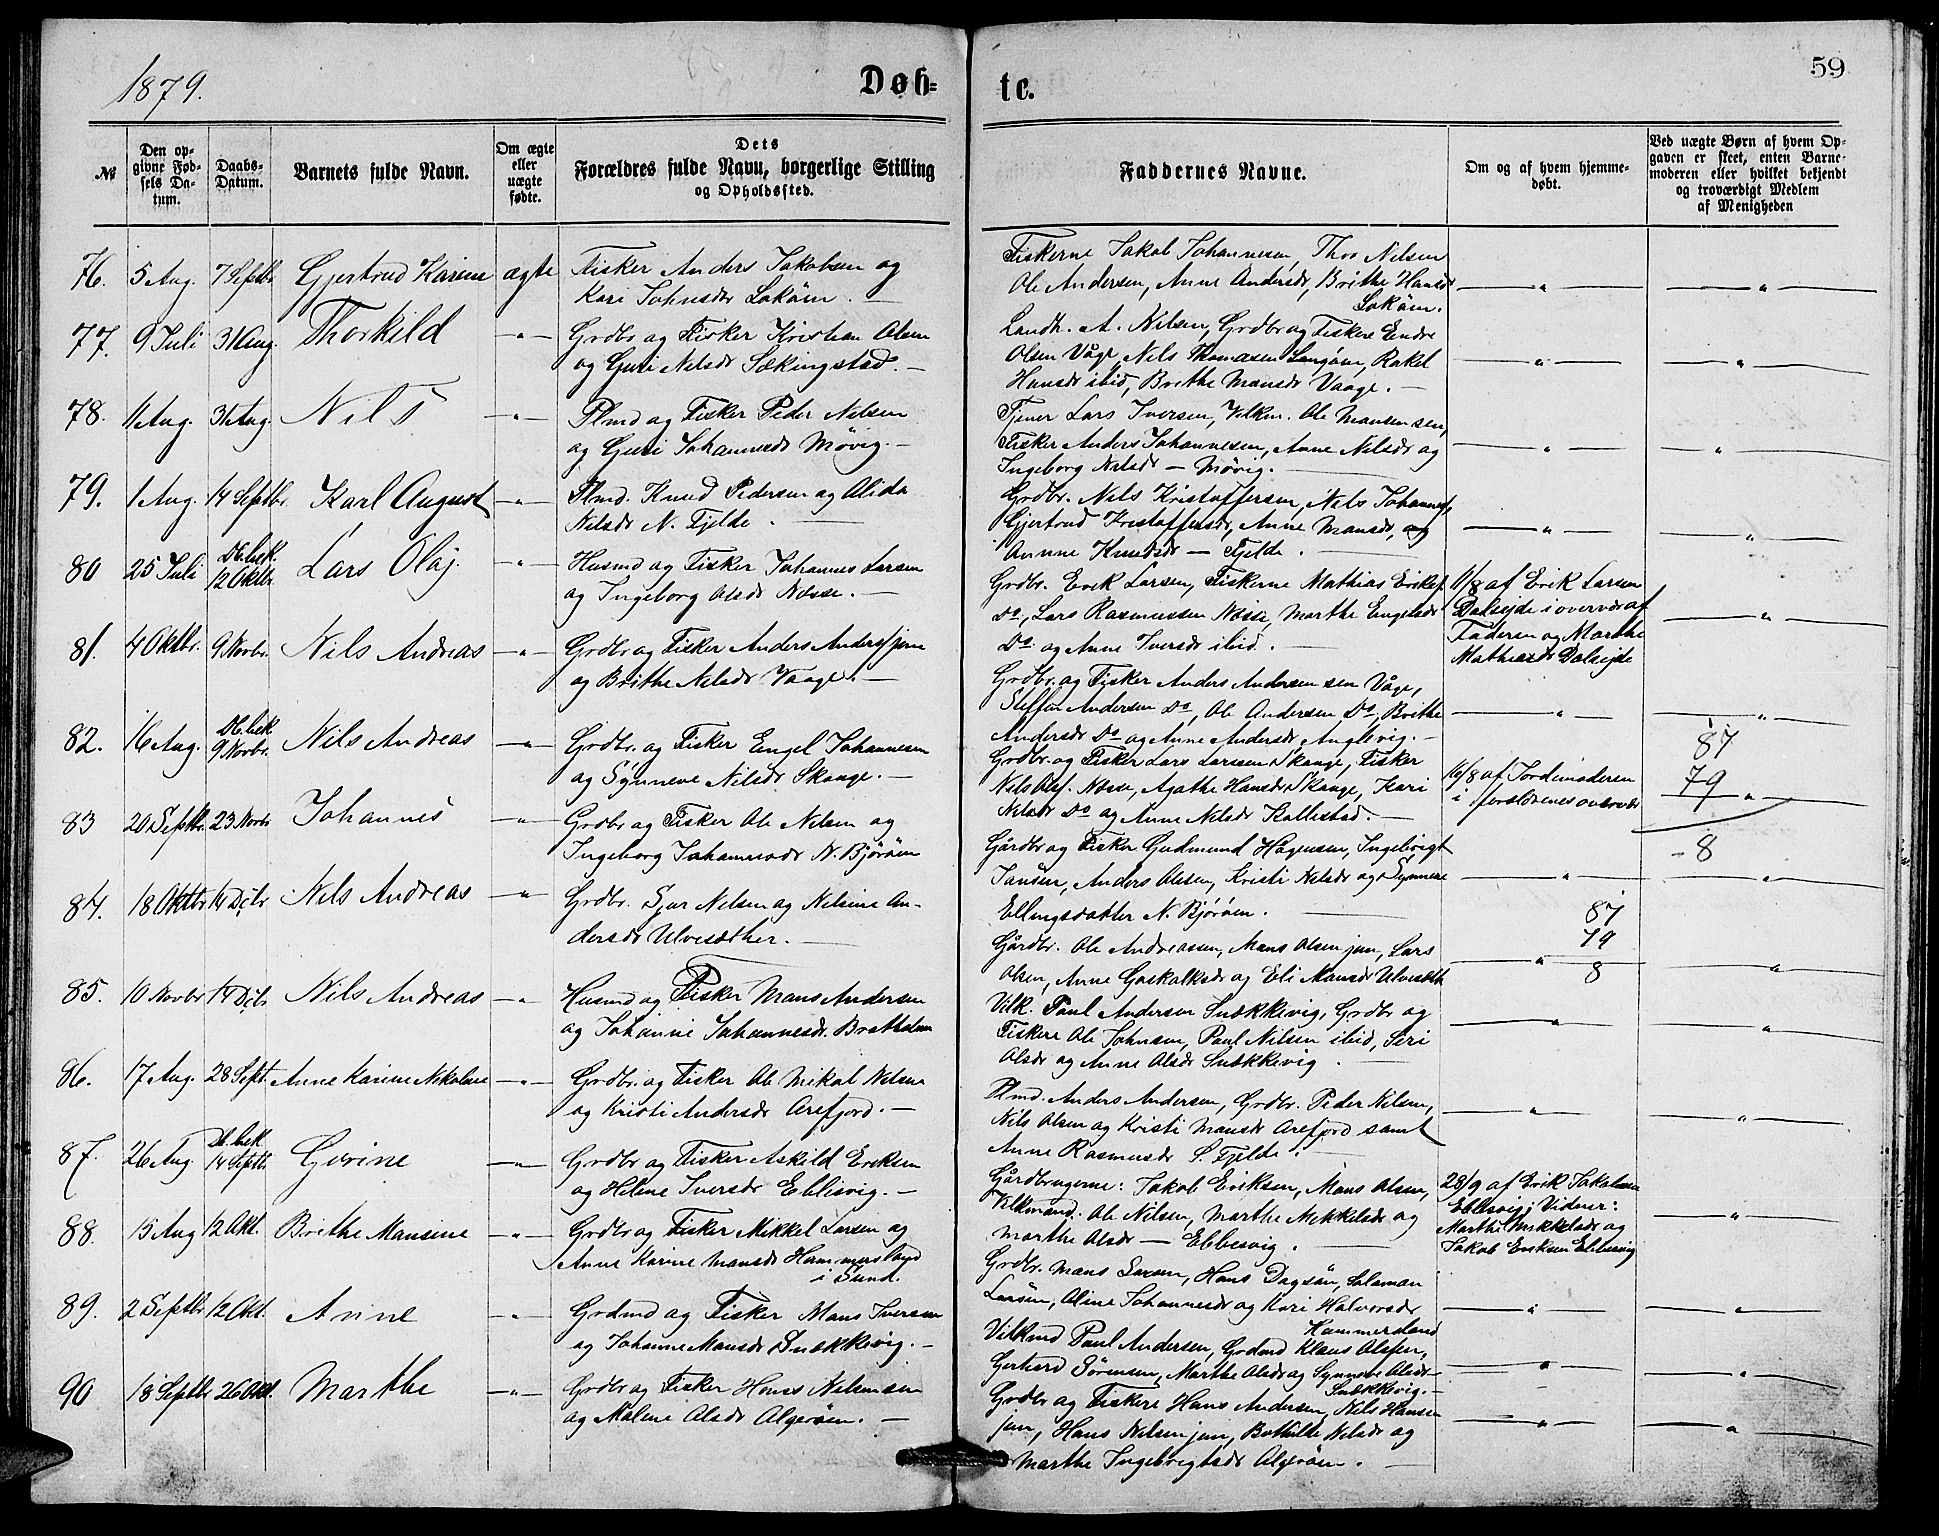 1879.
Døb=
te.
59
№
Den op-
givne Fød-
sels Da-
tum.
Daabs-
Datum.
Barnets fulde Navn.
Om ægte
eller
uægte
fødte.
Dets
Forældres fulde Navn, borgerlige Stilling
og Opholdssted.
Faddernes Navne.
Om og af hvem hjemme-
døbt.
Ved uægte Børn af hvem Op-
gaven er skeet, enten Barne-
moderen eller hvilket bekjendt
og troværdigt Medlem
af Menigheden
76. 5 Aug. 7 Septbr Gjertrud Karine ægte Fisker Anders Jakobsen og
Kari Johnsdr Lokøen. —
Fiskerne Jakob Johannesen, Thor Nilsen
Ole Andersen, Anne Andersdr, Brithe Hansdr
Lokøen.
77. 9 Juli 31 Aug. Thorkild — " — Grdbr og Fisker Kristian Olsen
og Guri Nilsdr Sækingstad. —
Landh. A. Nilsen, Grdbr og Fiskere Endre
Olsen Våge, Nils Thomasen Langøen, Rakel
Hansdr ibid, Brithe Mansdr Vaage. —
78. 11 Aug. 31 Aug. Nils — " — Plmd og Fisker Peder Nilsen
og Guri Johannesdr Møvig. —
Tjener Lars Iversen, Vilkm. Ole Mansen sen,
Fisker Anders Johannesen, Anne Nilsdr og
Ingeborg Nilsdr — Møvig. —
79. 1 Aug. 14 Septbr. Karl August — " — Plmd. Knud Pedersen og Alida
Nilsdr N. Fjelde. —
Grdbr. Nils Kristoffersen, Nils Johannes,
Gjertrud Kristoffersdr, Anne Mansdr, og
Annne Knudsdr — Fjelde. —
80 25 Juli Db. bek. 12 Oktbr Lars Olaj — " — Husmd og Fisker Johannes Larsen
og Ingeborg Olsdr Nesse. —
Grdbr. Erik Larsen, Fiskerne Mathias Eriksf.
Do, Lars Rasmussen Nesse, Marthe Engelsdr
Do og Anne Iversdr ibid. —
11/8 af Erik Larsen
Dalsejde i overvær af
Faderen og Marthe
Mathiasdr Dalsejde
81. 4 Oktbr. 9 Novbr. Nils Andreas — " — Grdbr og Fisker Anders Anders jun
og Brithe Nilsdr Vaage. —
Grdbr. og Fisker Anders Andersen sen Våge,
Steffen Andersen Do, Ole Andersen Do, Brithe
Andersdr Do og Anne Andersdr Anglevig. —
82. 16 Aug. Db. bek 9 Novbr. Nils Andreas — " — Grdbr. og Fisker Engel Johannesen
og Synneve Nilsdr Skauge. —
Grdbr. og Fisker Lars Larssen Skauge, Fisker
Nils Olsf. Nesse, Agathe Hansdr Skauge, Kari
Nilsdr Do og Anne Nilsdr Kallestad. —
16/8 af Jordemoderen
i forældrenes overvær
87
79
8
83 20 Septbr. 23 Novbr Johannes — " — Grdbr og Fisker Ole Nilsen og
Ingeborg Johannesdr N. Bjørøen
Gårdbr og Fisker Gudmund Hagensen, Ingebrigt
Jansen, Anders Olsen, Kristi Nilsdr og Synneve
Ellingsdatter N. Bjørøen. —
84. 18 Oktbr 14 Dcbr. Nils Andreas — " — Grdbr. Sjur Nilsen og Nilsine An-
dersdr Ulvesæther. —
Gårdbr. Ole Andreassen, Mans Olsen jun, Lars
Olsen, Anne Gaskalksdr og Eli Mansdr Ulvesæth
87
79
8
85. 10 Novbr 14 Dcbr Nils Andreas — " — Husmd og Fisker Mans Andersen
og Johanne Johannesdr. Bratholm
Vilk. Paul Andersen Snækkevig, Grdbr og
Fiskere Ole Johnsen, Paul Nilsen ibid, Siri
Olsdr og Anne Olsdr Snækkevig —
86. 17 Aug. 28 Sept. Anne Karine Nikoline — " — Grdbr. og Fisker Ole Mikal Nilsen
og Kristi Andersdr Arefjord. —
Plmd. Anders Andersen, Grdbr. Peder Nilsen,
Nils Olsen og Kristi Mansdr Arefjord samt
Anne Rasmusdr S. Fjelde. —
87. 26 Aug. Db. bek 14 Septbr. Gurine — " — Grdbr og Fisker Askild Eriksen
og Helene Iversdr Ebbesvig. —
Gårdbrugerne: Jakob Eriksen, Mans Olsen,
Vilkmand. Ole Nilsen, Marthe Mikkelsdr og
Marthe Olsdr — Ebbesvig. —
28/9 af Erik Jakobsen
Ebbesvig; Vidner:
Marthe Mikkelsdr og
Jakob Eriksen Ebbesvig
88. 15 Aug 12 Okt. Brithe Mansine — " — Grdbr og Fisker Mikkel Larsen og
Anne Karine Mansdr Hammersland
i Sund.
Grdbr. Mans Larsen, Hans Dagsøn, Salamon
Larsøn, Oline Johannesdr og Kari Halvorsdr
Hammersland
89. 2 Septbr 12 Okt. Anne — " — Grdmd og Fisker Mans Iversen
og Johanne Mansdr Snækkevig. —
Vilkmd Paul Andersen, Grdmd Klaus Olsen,
Gerhard Sørensen, Marthe Olsdr og Synneve Olsdr —
Snækkevig. —
90 18 Septbr 26 Okt. Marthe — " — Grdbr og Fisker Hans Nilsen sen
og Malene Olsdr Algerøen. —
Grdbr og Fiskere Hans Andersen, Nils Hansen
jun, Hans Nilsen jun, Bothilde Nilsdr og
Marthe Ingebrigtsdr Algerøen. —